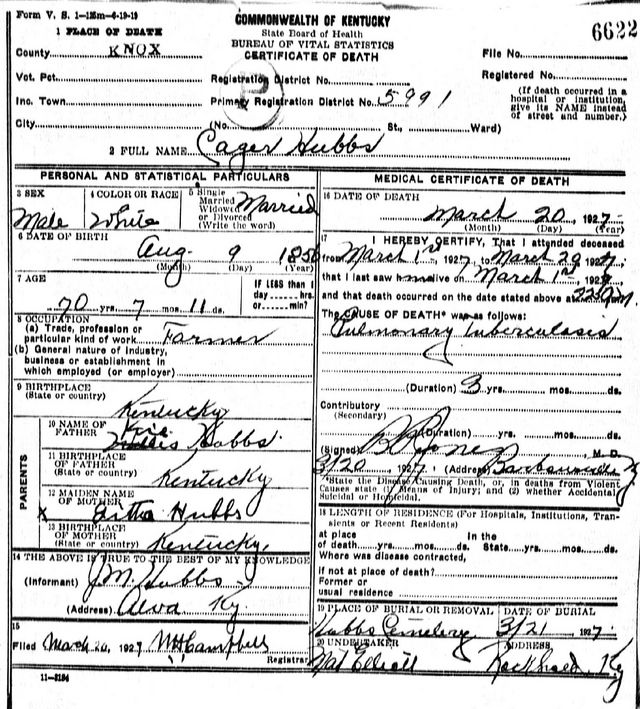 Form V. S. 1—125m—6-19-19
COMMONWEALTH OF KENTUCKY
State Board of Health
BUREAU OF VITAL STATISTICS
CERTIFICATE OF DEATH
6622
1 PLACE OF DEATH
County KNOX
File No.
Vot. Pct.
Registration District No.
Registered No.
Inc. Town
Primary Registration District No. 5991
(If death occurred in a hospital or institution, give its NAME instead of street and number.)
City (No. St., Ward)
2 FULL NAME Cager Hubbs
PERSONAL AND STATISTICAL PARTICULARS
3 SEX Male
4 COLOR OR RACE White
5 Single Married Widowed or Divorced (Write the word) Married
6 DATE OF BIRTH Aug 9 1856
(Month) (Day) (Year)
7 AGE
70 yrs. 7 mos. 11 ds.
IF LESS than 1 day hrs. or min?
8 OCCUPATION
(a) Trade, profession or particular kind of work Farmer
(b) General nature of industry, business or establishment in which employed (or employer)
9 BIRTHPLACE
(State or country) Kentucky
PARENTS
10 NAME OF FATHER Hubbs
11 BIRTHPLACE OF FATHER
(State or country) Kentucky
12 MAIDEN NAME OF MOTHER Hubbs
13 BIRTHPLACE OF MOTHER
(State or country) Kentucky
14 THE ABOVE IS TRUE TO THE BEST OF MY KNOWLEDGE
(Informant) J.M. Hubbs
(Address) Alva Ky.
15
Filed March 20, 1927 WHCampbell
Registrar
11-3184
MEDICAL CERTIFICATE OF DEATH
16 DATE OF DEATH
March 20, 1927
(Month) (Day) (Year)
17 I HEREBY CERTIFY, That I attended deceased
from March 1st 1927, to March 20 1927
that I last saw him alive on March 1st, 192
and that death occurred on the date stated above at M.
The CAUSE OF DEATH* was as follows:
Pulmonary Tuberculosis
(Duration) 3 yrs. mos. ds.
Contributory
(Secondary)
(Duration) yrs. mos. ds.
(Signed) Jones, M. D.
3/20 1927 (Address) Barbourville Ky
*State the Disease Causing Death, or, in deaths from Violent Causes state (1) Means of Injury; and (2) whether Accidental Suicidal or Homicidal.
18 LENGTH OF RESIDENCE (For Hospitals, Institutions, Transients or Recent Residents)
at place of death yrs. mos. ds. In the State yrs. mos. ds.
Where was disease contracted,
if not at place of death?
Former or usual residence
19 PLACE OF BURIAL OR REMOVAL
Hubbs Cemetery
DATE OF BURIAL
3/21 1927
20 UNDERTAKER
Nat Elliott
ADDRESS
Ky